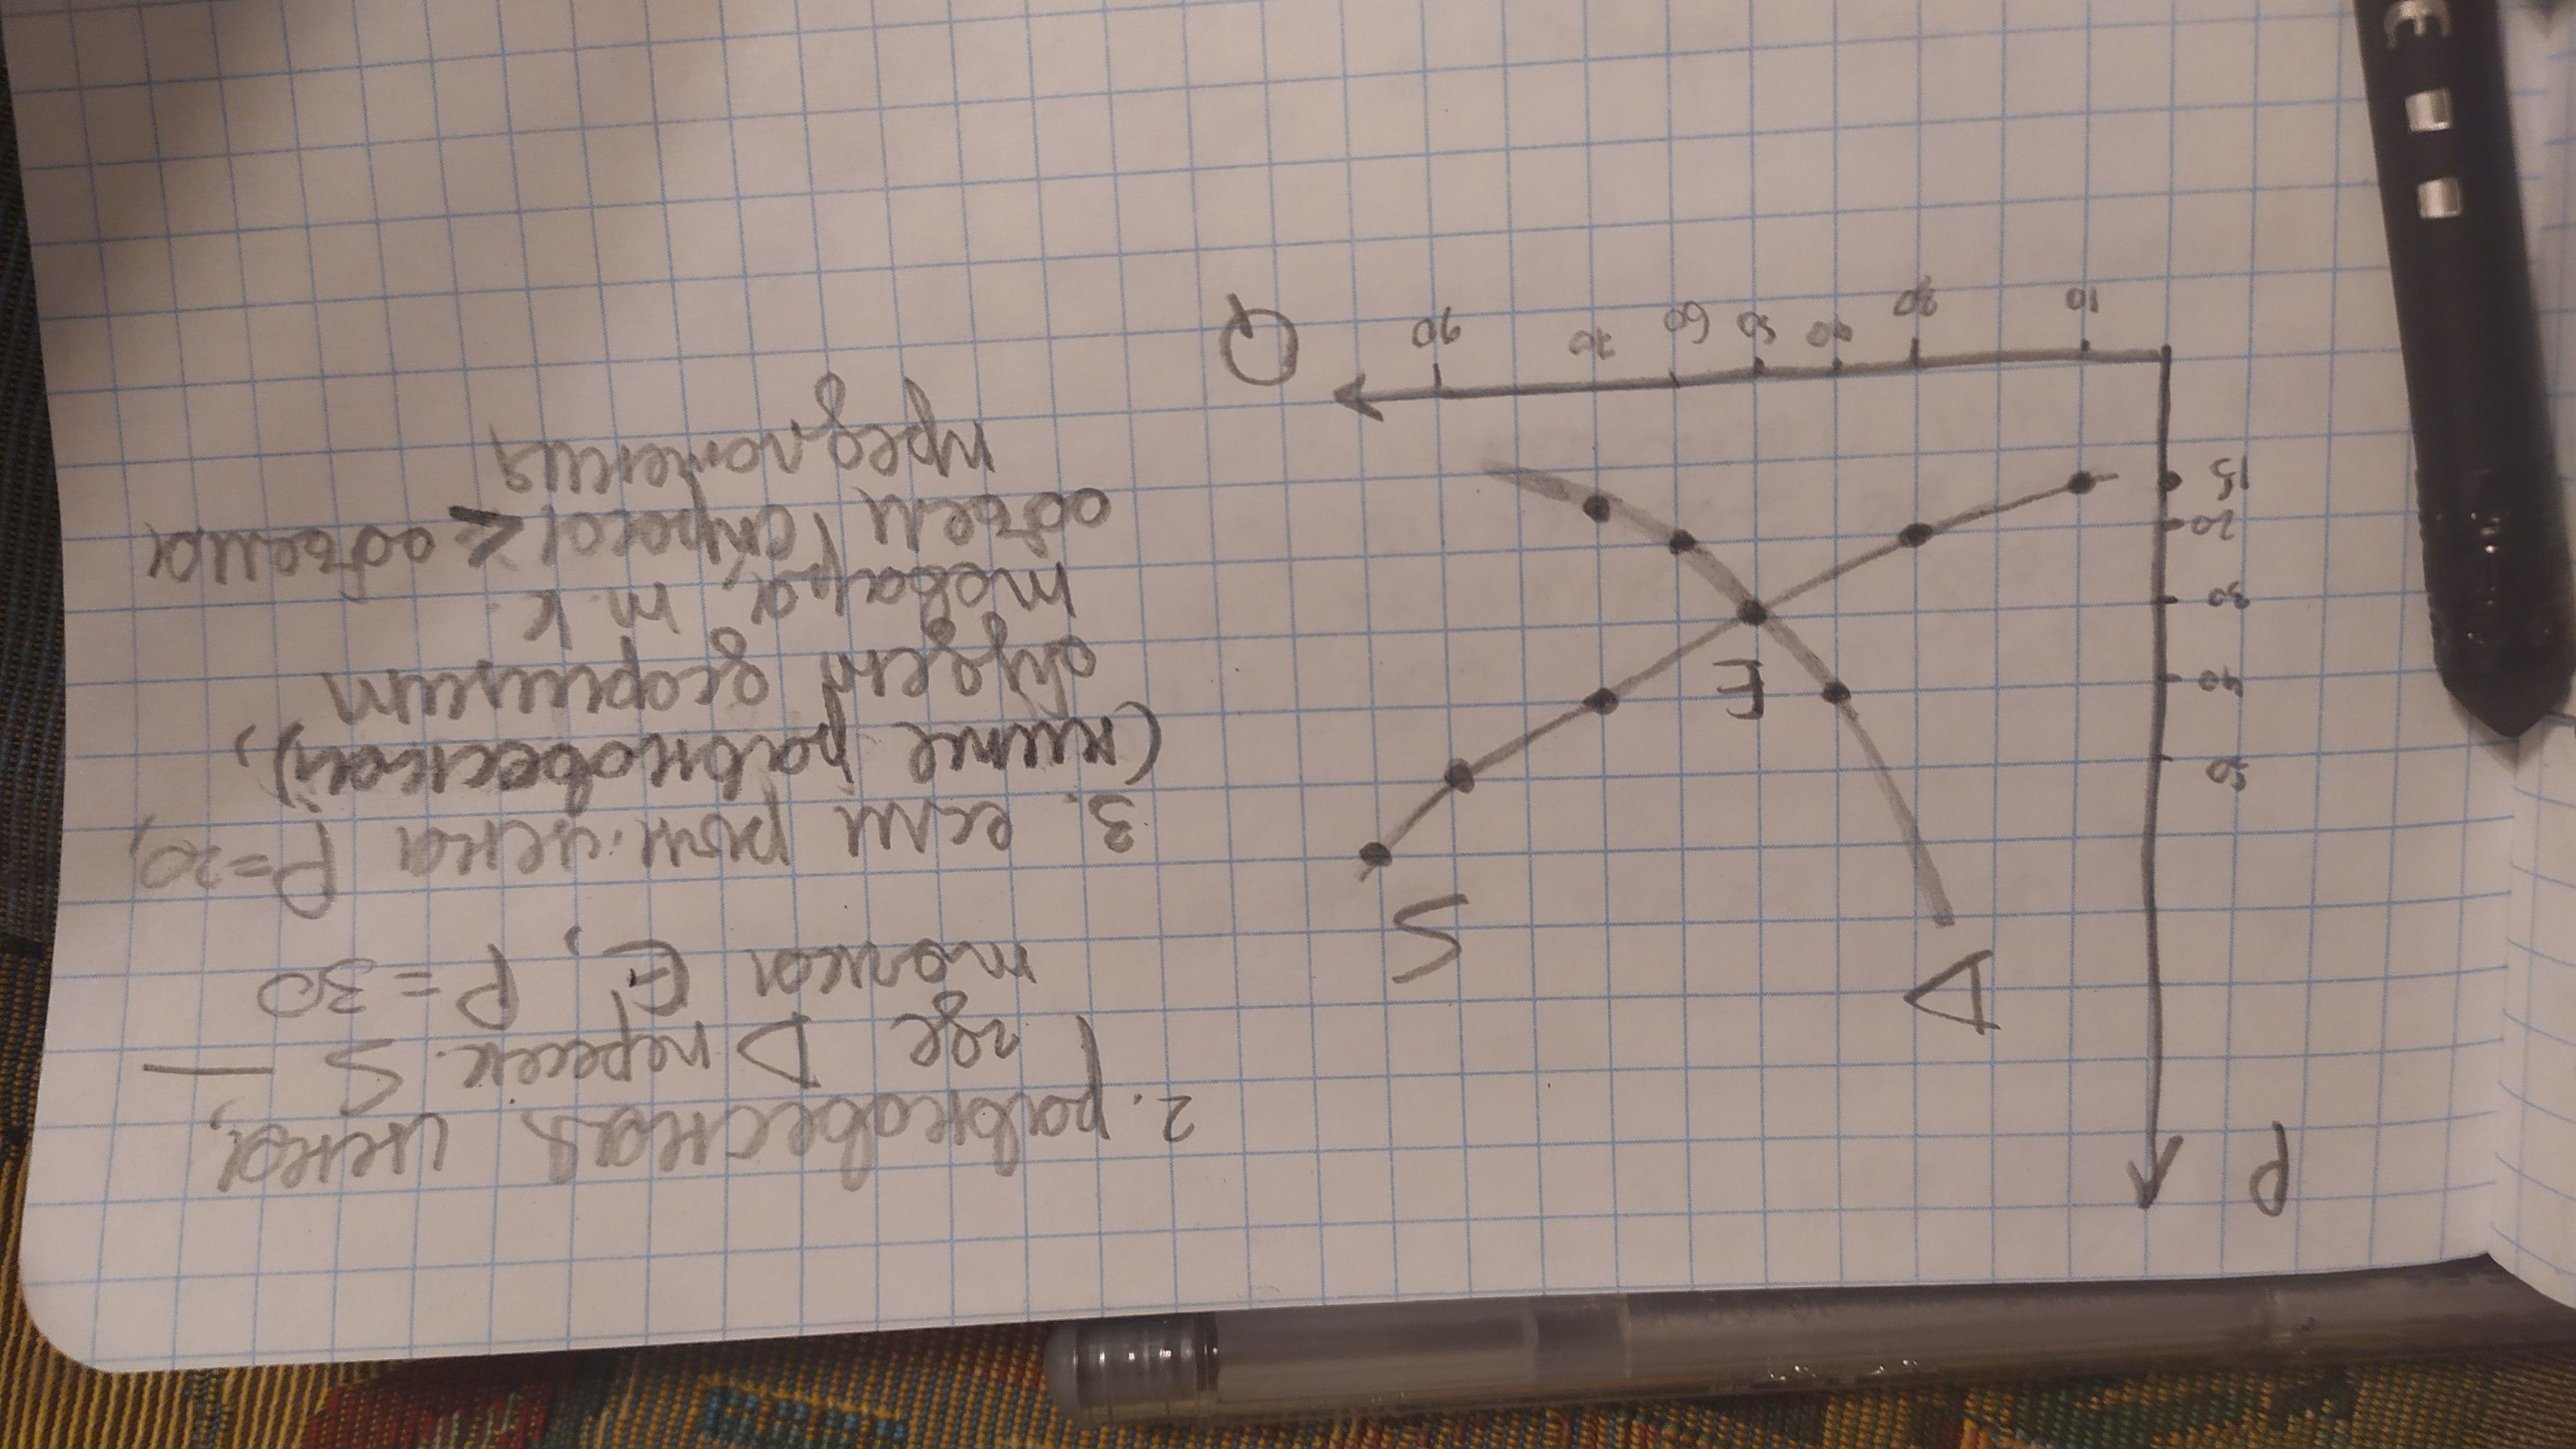 P
D
S
50
40
E
30
20
15
10
30
40
50
60
70
90
Q
2. равновесная цена,
где D пересек. S —
точка E, P=30
3. если рын. цена P=20,
(ниже равновесной),
будет дефицит
товара, т.к.
объем спроса > объема
предложения